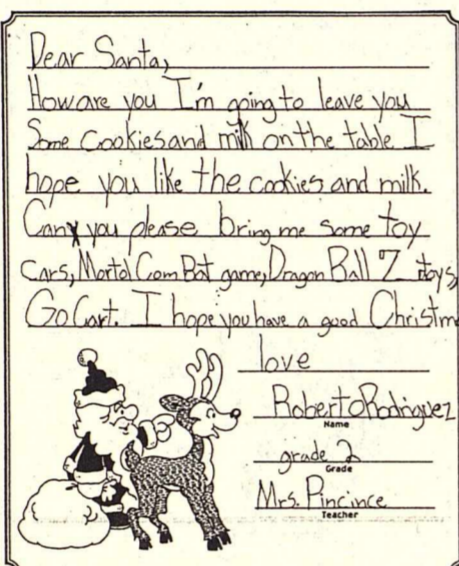 Dear Santa,
How are you I'm going to leave you
Some Cookies and milk on the table. I
hope you like the cookies and milk.
Can you please bring me some toy
cars, Mortol Com Bat game, Dragon Ball Z toys,
Go Cart. I hope you have a good Christm
love
Roberto Rodriguez
Name
grade 2
Grade
Mrs. Pincince
Teacher